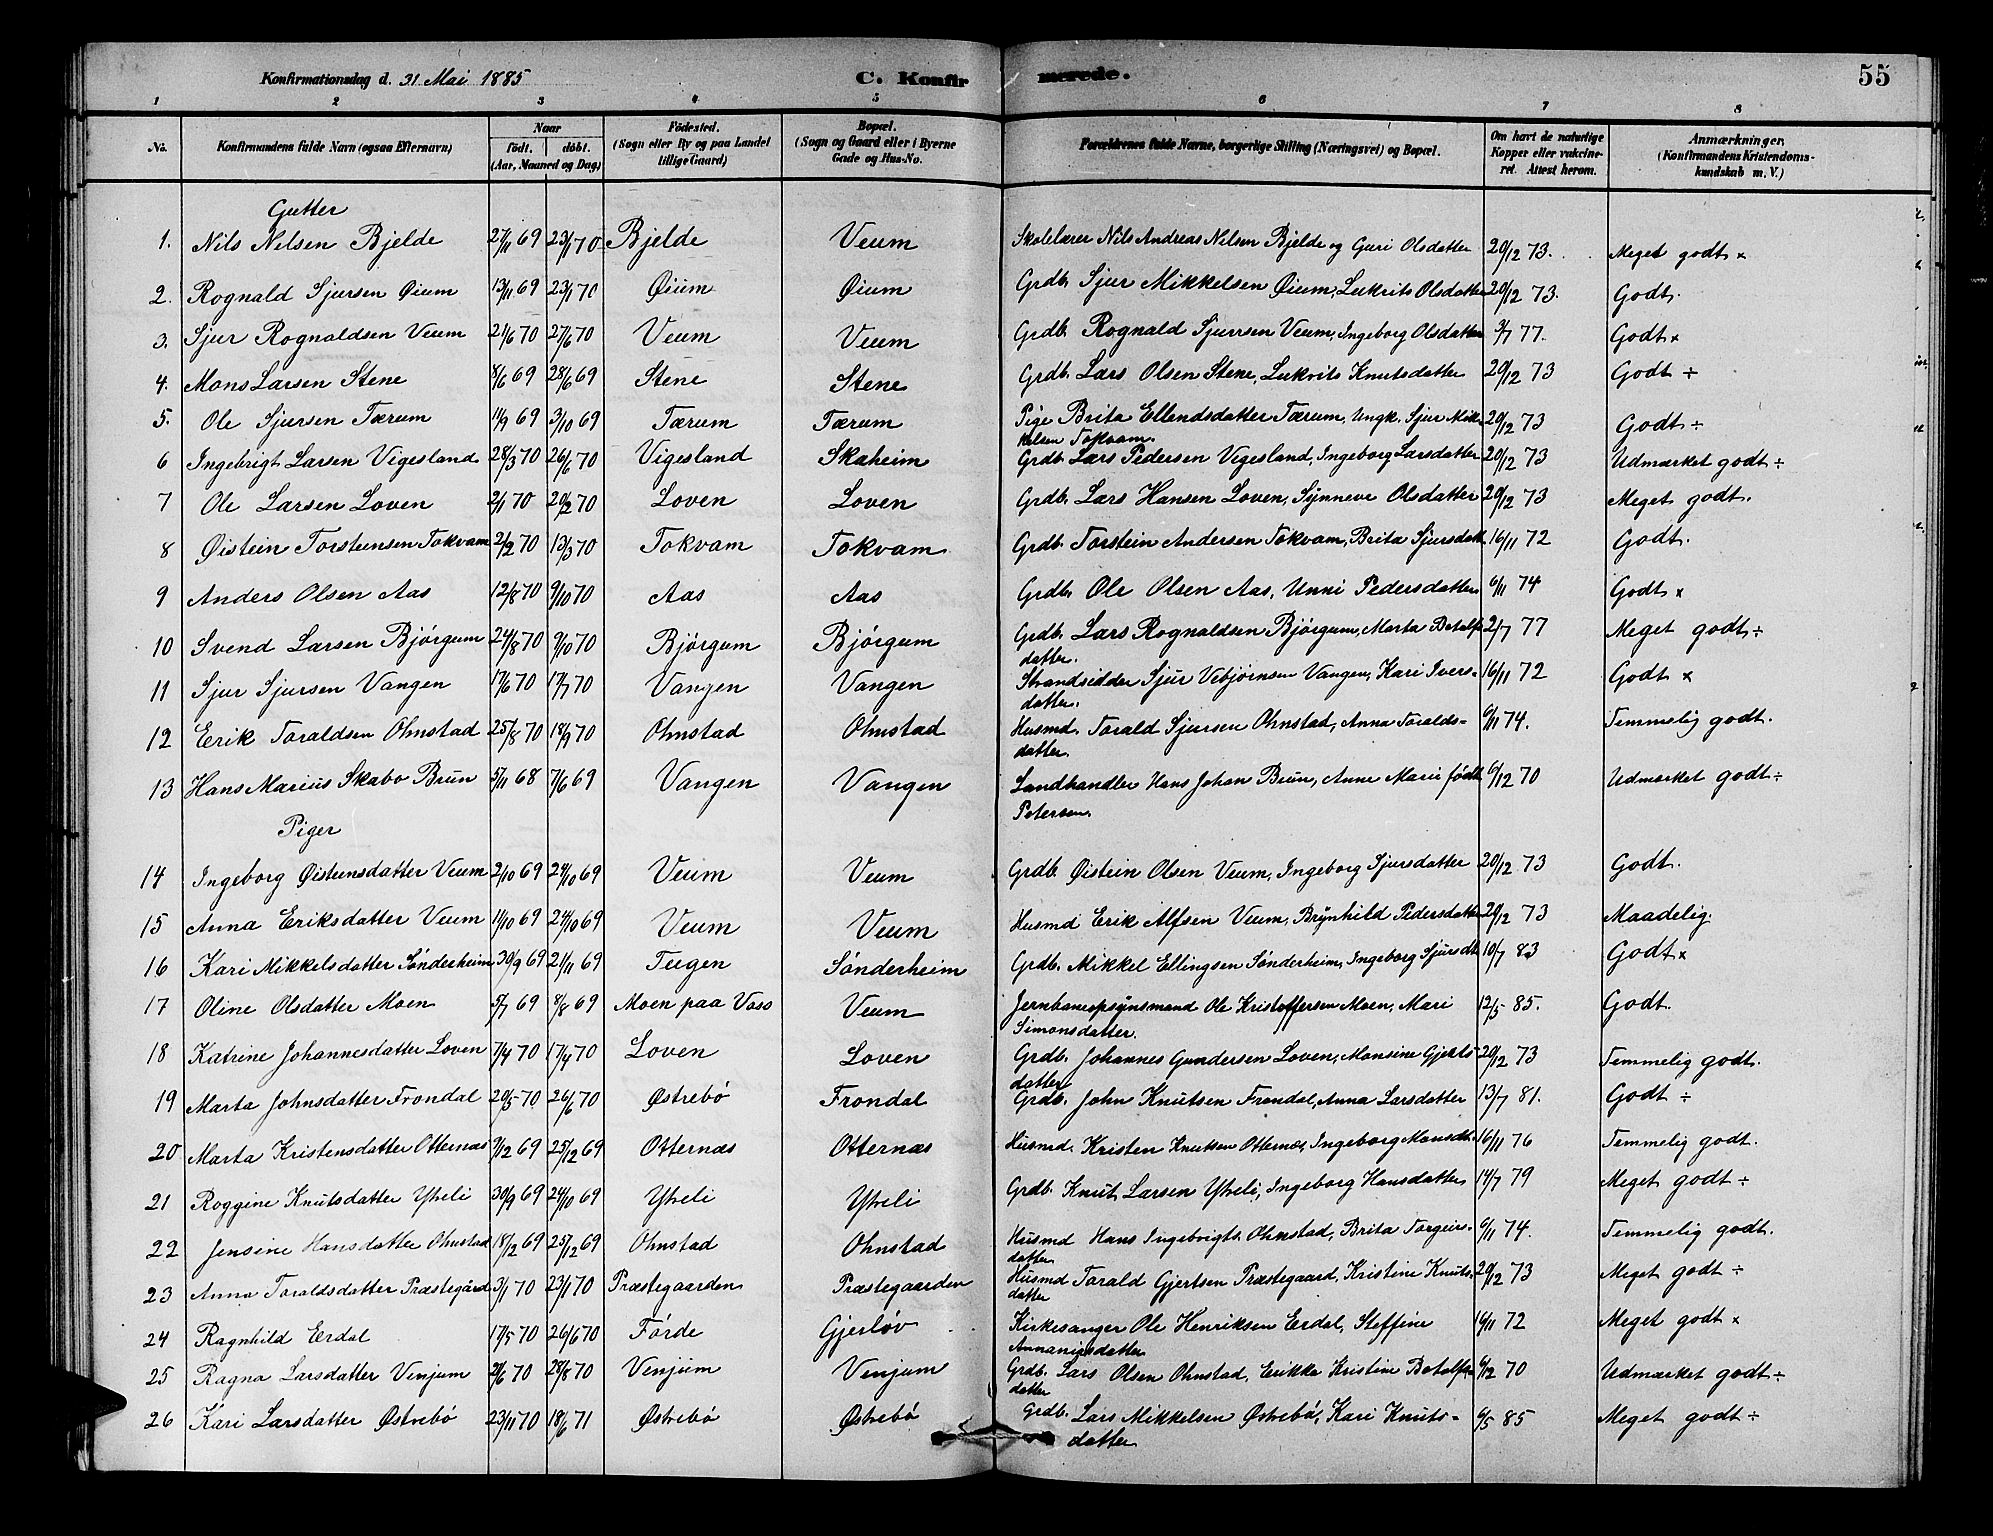 Konfirmationsdag d. 31. Mai 1885 C. Konfirmerede. 55
1 2 3 4 5 6 7 8
No. Konfirmandens fulde Navn (ogsaa Efternavn) Naar født. døbt. (Aar, Maaned og Dag) Fødested. (Sogn eller By og paa Landet tillige Gaard) Bopæl. (Sogn og Gaard eller i Byerne Gade og Hus-No. Forældrenes fulde Navne, borgerlige Stilling (Næringsvei) og Bopæl. Om havt de naturlige Kopper eller vakcineret. Attest herom. Anmærkninger. (Konfirmandens Kristendomskundskab m. V.)
Gutter
1. Nils Nilsen Bjelde 27/11 69 23/1 70 Bjelde Veum Skolelærer Nils Andreas Nilsen Bjelde og Guri Olsdatter 20/12 73. Meget godt ×
2. Rognald Sjursen Øium 13/11 69 23/1 70 Øium Øium Grdb. Sjur Mikkelsen Øium, Lukrits Olsdatter 20/12 73. Godt.
3. Sjur Rognaldsen Veum 21/6 70 27/6 70 Veum Veum Grdb. Rognald Sjursen Veum, Ingeborg Olsdatter 3/7 77. Godt ×
4. Mons Larsen Stene 8/6 69 28/6 69 Stene Stene Grdb. Lars Olsen Stene, Lukrits Knutsdatter 20/12 73 Godt ÷
5. Ole Sjursen Tærum 11/9 69 3/10 69 Tærum Tærum Pige Brita Ellendsdatter Tærum, Ungk. Sjur Mik-
kelsen Tokvam. 20/12 73 Godt ÷
6 Ingebrigt Larsen Vigesland 28/3 70 26/6 70 Vigesland Skaheim Grdb. Lars Pedersen Vigesland, Ingeborg Larsdatter 20/12 73 Udmærket godt ÷
7 Ole Larsen Loven 2/1 70 20/2 70 Loven Loven Grdb. Lars Hansen Loven, Synneve Olsdatter 20/12 73 Meget godt.
8 Øistein Torsteinsen Tokvam 2/2 70 13/3 70 Tokvam Tokvam Grdb. Torstein Andersen Tokvam, Brita Sjursdatt. 16/11 72 Godt.
9 Anders Olsen Aas 12/8 70 9/10 70 Aas Aas Grdb. Ole Olsen Aas, Unni Pedersdatter 6/11 74 Godt ×
10 Svend Larsen Bjørgum 24/8 70 9/10 70 Bjørgum Bjørgum Grdb. Lars Rognaldsen Bjørgum, Marta Botolfs-
datter. 2/7 77 Meget godt ÷
11 Sjur Sjursen Vangen 17/6 70 17/7 70 Vangen Vangen Strandsidder Sjur Vebjørnsen Vangen, Kari Ivers-
datter. 16/11 72 Godt ×
12 Eerik Toraldsen Ohnstad 25/8 70 18/9 70 Ohnstad Ohnstad Husmd. Torald Sjursen Ohnstad, Anna Toralds-
datter. 6/11 74. Temmelig godt.
13 Hans Marius Skabo Brun 5/11 68 7/6 69 Vangen Vangen Landhandler Hans Johan Brun, Anne Marie født
Petersen. 6/12 70 Udmærket godt ÷
Piger
14 Ingeborg Øisteinsdatter Veum 2/10 69 24/10 69 Veum Veum Grdb. Øistein Olsen Veum, Ingeborg Sjursdatter 20/12 73 Godt.
15 Anna Eriksdatter Veum 11/10 69 24/10 69 Veum Veum Husmd Erik Alfsen Veum, Brynhild Pedersdatter 20/12 73 Maadelig.
16 Kari Mikkelsdatter Sønderheim 30/9 69 21/11 69 Teigen Sønderheim Grdb. Mikkel Ellingsen Sønderheim, Ingeborg Sjursdt. 10/7 83 Godt ×
17 Oline Olsdatter Moen 5/7 69 8/8 69 Moen paa Voss Veum Jernbaneopsynsmand Ole Kristoffersen Moen, Mari
Simonsdatter. 12/5 85. Godt.
18 Katrine Johannesdatter Loven 7/4 70 17/4 70 Loven Loven Grdb. Johannes Gundersen Loven, Monsine Gjerts-
datter 20/12 73 Temmelig godt.
19 Marta Johnsdatter Frondal 20/5 70 26/6 70 Østrebø Frondal Grdb. John Knutsen Frondal, Anna Larsdatter 13/7 81. Godt ÷
20 Marta Kristensdatter Otternæs 9/12 69 25/12 69 Otternæs Otternæs Husmd. Kristen Knutsen Otternæs, Ingeborg Monsdt. 16/11 76 Temmelig godt.
21 Roggine Knutsdatter Ytreli 30/9 69 24/10 69 Ytreli Ytreli Grdb. Knut Larsen Ytreli, Ingeborg Hansdatter 14/7 79 Meget godt ÷
22 Jensine Hansdatter Ohnstad 18/12 69 25/12 69 Ohnstad Ohnstad Husmd Hans Ingebrigts. Ohnstad, Brita Torgeirs-
datter 6/11 74. Temmelig godt.
23 Anna Toraldsdatter Præstegård 3/1 70 23/1 70 Præstegaarden Præstegaarden Husmd Torald Gjertsen Præstegaard, Kristine Knuts-
datter 20/12 73 Meget godt ÷
24 Ragnhild Eerdal 17/5 70 26/6 70 Førde Gjerløv Kirkesanger Ole Henriksen Eerdal, Steffine
Annaniasdatter 16/11 72 Meget godt ×
25 Ragna Larsdatter Vinjum 21/6 70 28/8 70 Venjum Venjum Grdb. Lars Olsen Ohnstad, Erikka Kristine Botolfs-
datter 6/12 70 Udmærket godt ÷
26 Kari Larsdatter Østrebø 23/11 70 18/6 71 Østrebø Østrebø Grdb. Lars Mikkelsen Østrebø, Kari Knuts-
datter 6/5 85 Meget godt ÷